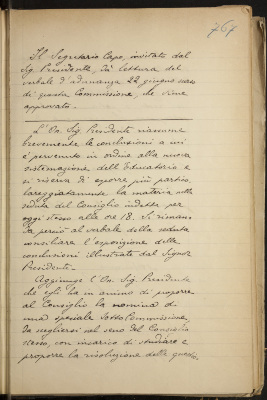 767
Il Segretario Capo, invitato dal
Sig. Presidente, dà lettura del
verbale d'adunanza 22 giugno
di questa Commissione, che viene
approvato.
L'On. Sig. Presidente riassume
brevemente le conclusioni a cui
è pervenuto in ordine alla nuova
sistemazione dell'Educatorio e
si riserva di esporre più partico
lareggiatamente la materia nella
seduta del Consiglio indetta per
oggi stesso alle ore 18. Si riman
da perciò al verbale della seduta
consiliare l'esposizione delle
conclusioni illustrate dal Signor
Presidente.
Aggiunge l'On. Sig. Presidente
che egli ha in animo di proporre
al Consiglio la nomina di
una speciale Sotto Commissione,
da scegliersi nel seno del Consiglio
stesso, con incarico di studiare e
proporre la risoluzione delle